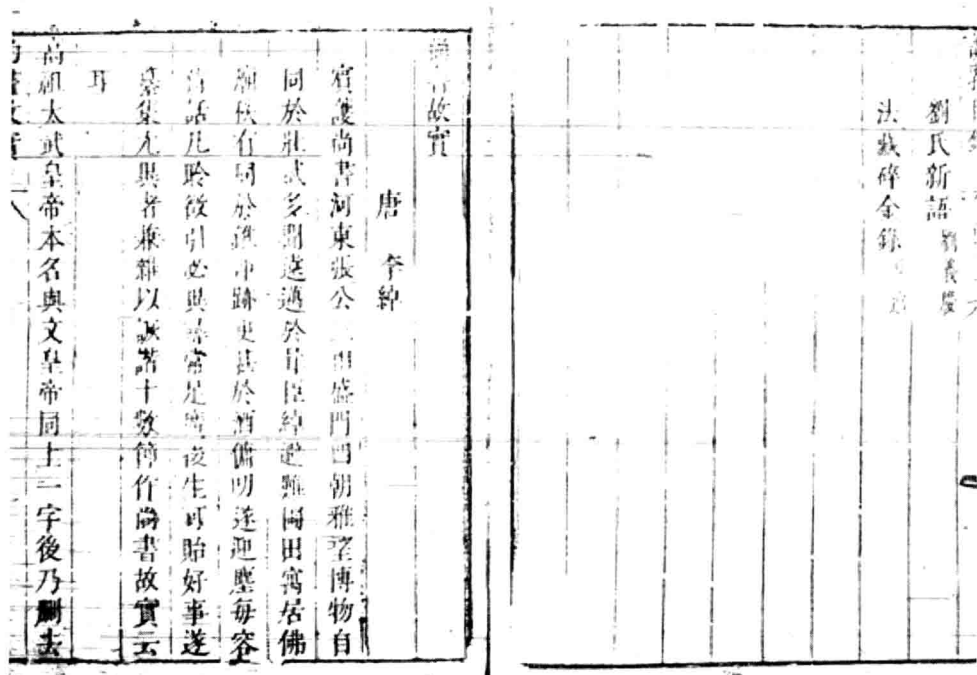 劉氏新語 劉義慶
法藏碎金錄
尚書故實
唐 李綽
賓護尚書河東張公三 盛門四朝雅望博物自
同於壯武多聞遠邁於胥臣綽避難圃田寓居佛
廟秩有同於 跡更甚於酒傭叨遂迎塵每容
話凡聆徵引必異尋常足廣後生可貽好事遂
纂集尤異者兼雜以詼諧十數節作尚書故實云
耳
高祖太武皇帝本名與文皇帝同上一字後乃刪去
尚書故實